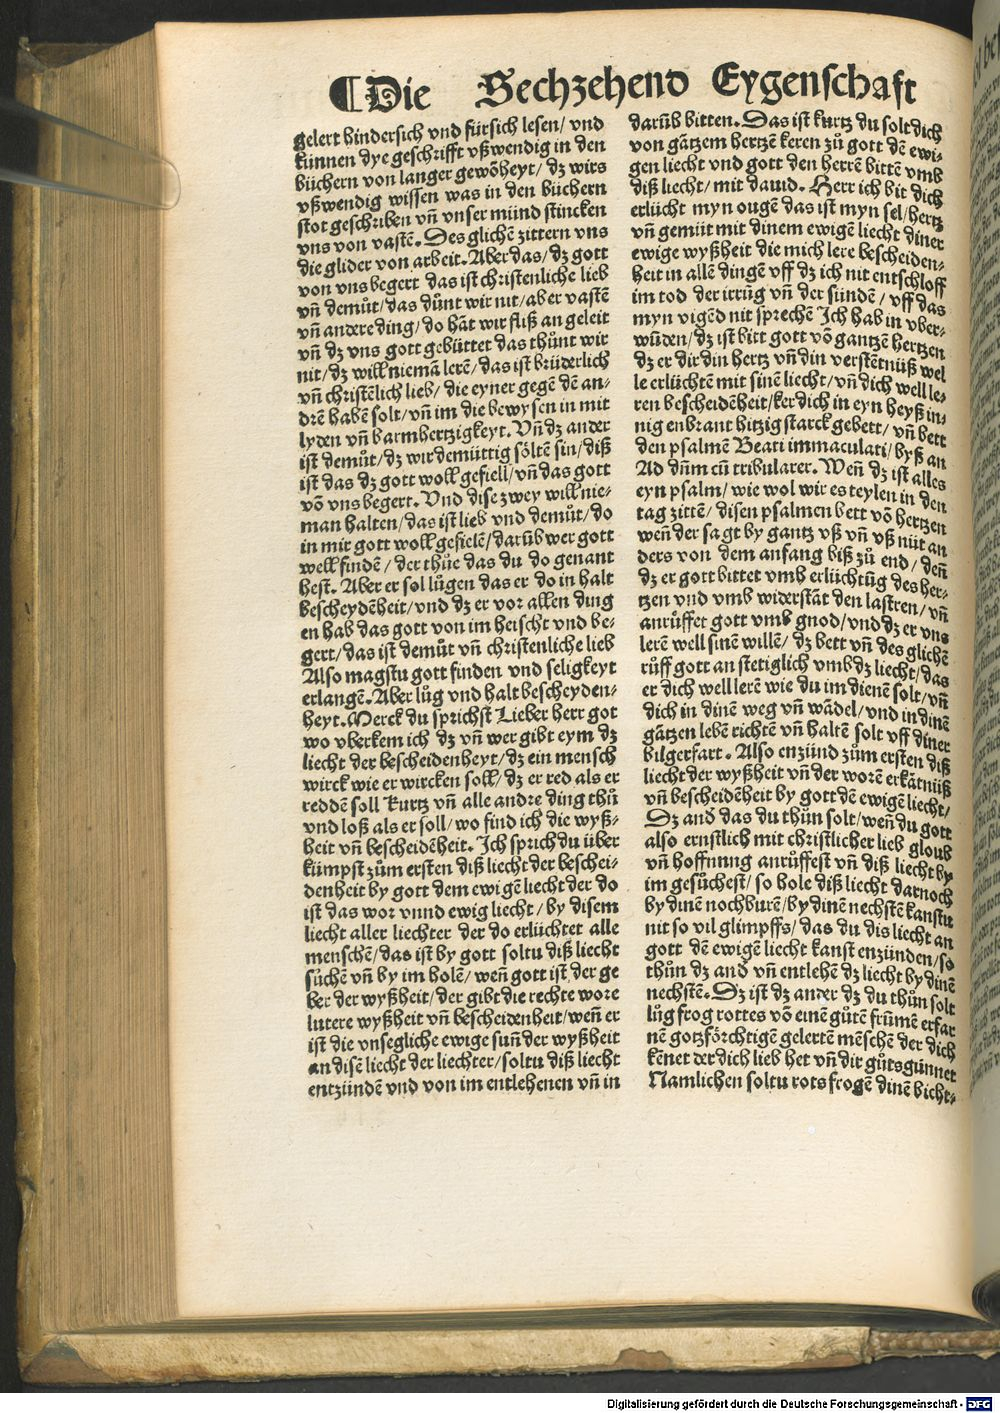 ¶Die Sechzehend Eygenschaft
gelert hindersich vnd fürsich lesen/ vnd
künnen dye geschrifft vßwendig in den
büchern von langer gewöheyt/ dz wirs
vßwendig wissen was in den büchern
stot geschriben vñ vnser münd stincken
vns von vastē. Des glichē zittern vns
die glider von arbeit. Aber das/ dz gott
von vns begert das ist christenliche lieb
vñ demůt/ das důnt wir nit/ aber vastē
vñ andere ding/ do hāt wir fliß an geleit
vñ dz vns gott gebüttet das thůnt wir
nit/ dz will niemā lerē/ das ist brüderlich
vñ christēlich lieb/ die eyner gegē dē an⸗
drē habē solt/ vñ im die bewysen in mit
lyden vñ barmhertzigkeyt. Vñ dz ander
ist demůt/ dz wir demüttig söltē sin/ diß
ist das dz gott woll gefiell/ vñ das gott
vō vns begert. Vnd dise zwey will nie⸗
man halten/ das ist lieb vnd demůt/ do
in mir gott woll gefielē/ darūb wer gott
well findē/ der thůe das du do genant
hest. Aber er sol lůgen das er do in halt
bescheydēheit/ vnd dz er vor allen ding
en hab das gott von im heischt vnd be⸗
gert/ das ist demůt vñ christenliche lieb
Also magstu gott finden vnd seligkeyt
erlangē. Aber lůg vnd halt bescheyden⸗
heyt. Merck du sprichst Lieber herr got
wo vberkem ich dz vñ wer gibt eym dz
liecht der bescheidenheyt/ dz ein mensch
wirck wie er wircken soll/ dz er red als er
reddē soll kurtz vñ alle andre ding thů
vnd loß als er soll/ wo find ich die wyß⸗
heit vñ bescheidēheit. Ich sprich du über
kümpst zům ersten diß liecht der beschei⸗
denheit by gott dem ewigē liecht der do
ist das wor vnnd ewig liecht/ by disem
liecht aller liechter der do erlüchtet alle
menschē/ das ist by gott soltu diß liecht
sůchē vñ by im holē/ weñ gott ist der ge
ber der wyßheit/ der gibt die rechte wore
lutere wyßheit vñ bescheidenheit/ weñ er
ist die vnsegliche ewige suñ der wyßheit
an disē liecht der liechter/ soltu diß liecht
entzündē vnd von im entlehenen vñ in
darūb bitten. Das ist kurtz du solt dich
von gātzem hertzē keren zů gott dē ewi⸗
gen liecht vnd gott den herrē bittē vmb
diß liecht/ mit dauid. Herr ich bit dich
erlücht myn ougē das ist myn sel/ hertz
vñ gemüt mit dinem ewigē liecht diner
ewige wyßheit die mich lere bescheiden⸗
heit in allē dingē vff dz ich nit entschloff
im tod der irrūg vñ der sündē/ vff das
myn vigēd nit sprechē Ich hab in vber⸗
wūden/ dz ist bitt gott vō gantzē hertzen
dz er dir din hertz vñ din verstētnüß wel
le erlüchtē mit sinē liecht/ vñ dich well le⸗
ren bescheidēheit/ ker dich in eyn heyß in⸗
nig enbrant hitzig starck gebett/ vñ bett
den psalmē Beati immaculati/ byß an
Ad dñm cū tribularer. Weñ dz ist alles
eyn psalm/ wie wol wir es teylen in den
tag zittē/ disen psalmen bett vō hertzen
weñ der sagt by gantz vß vñ vß nüt an
ders von dem anfang biß zů end/ deñ
dz er gott bittet vmb erlüchtūg des her⸗
tzen vnd vmb widerstāt den lastren/ vñ
anrüffet gott vmb gnod/ vnd dz er vns
lerē well sinē willē/ dz bett vñ des glichē
rüff gott an stetiglich vmb dz liecht/ das
er dich well lerē wie du im dienē solt/ vñ
dich in dinē weg vñ wādel/ vnd in dinē
gātzen lebē richtē vñ haltē solt vff diner
bilgerfart. Also enzünd zům ersten diß
liecht der wyßheit vñ der worē erkātnüß
vñ bescheidēheit by gott dē ewigē liecht/
Dz and̄ das du thůn solt/ weñ du gott
also ernstlich mit christlicher lieb gloub
vñ hoffnung anrüffest vñ diß liecht by
im gesůchest/ so hole diß liecht darnoch
by dinē nochburē/ by dinē nechstē kanstu
nit so vil glimpffs/ das du dis liecht an
gott dē ewigē liecht kanst enzünden/ so
thůn dz and̄ vñ entlehē dz liecht by dinē
nechstē. Dz ist dz ander dz du thůn solt
lůg frog rottes vō einē gůtē frūmē erfar
nē gotzförchtigē gelertē mēschē der dich
kēnet der dich lieb het vñ dir gůts günnet
Namlichen soltu rots frogē dinē bicht⸗
Digitalisierung gefördert durch die Deutsche Forschungsgemeinschaft - DFG